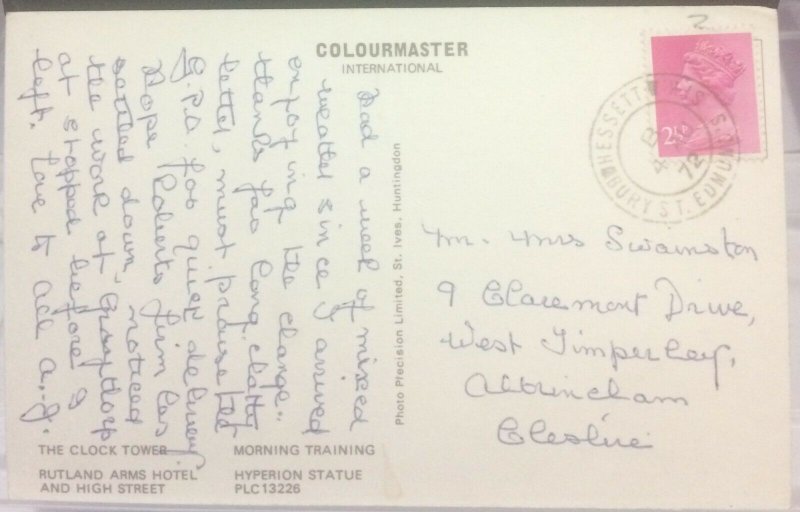 COLOURMASTER
INTERNATIONAL
Had a week of mixed
weather since I arrived
enjoying the change.
thanks for long chatty
letter, must praise the
G.P.O. for quick delivery
Hope Roberts firm has
settled down, noticed
the work at
at stopped before I
left. Love to all A.J.
Photo Precision Limited, St. Ives, Huntingdon
2½P
HESSETT
BURY ST. EDMUNDS
72
Mr. Mrs Swainston
9 Claremont Drive,
West Timperley,
Altrincham
Cheshire
THE CLOCK TOWER
MORNING TRAINING
RUTLAND ARMS HOTEL
AND HIGH STREET
HYPERION STATUE
PLC13226